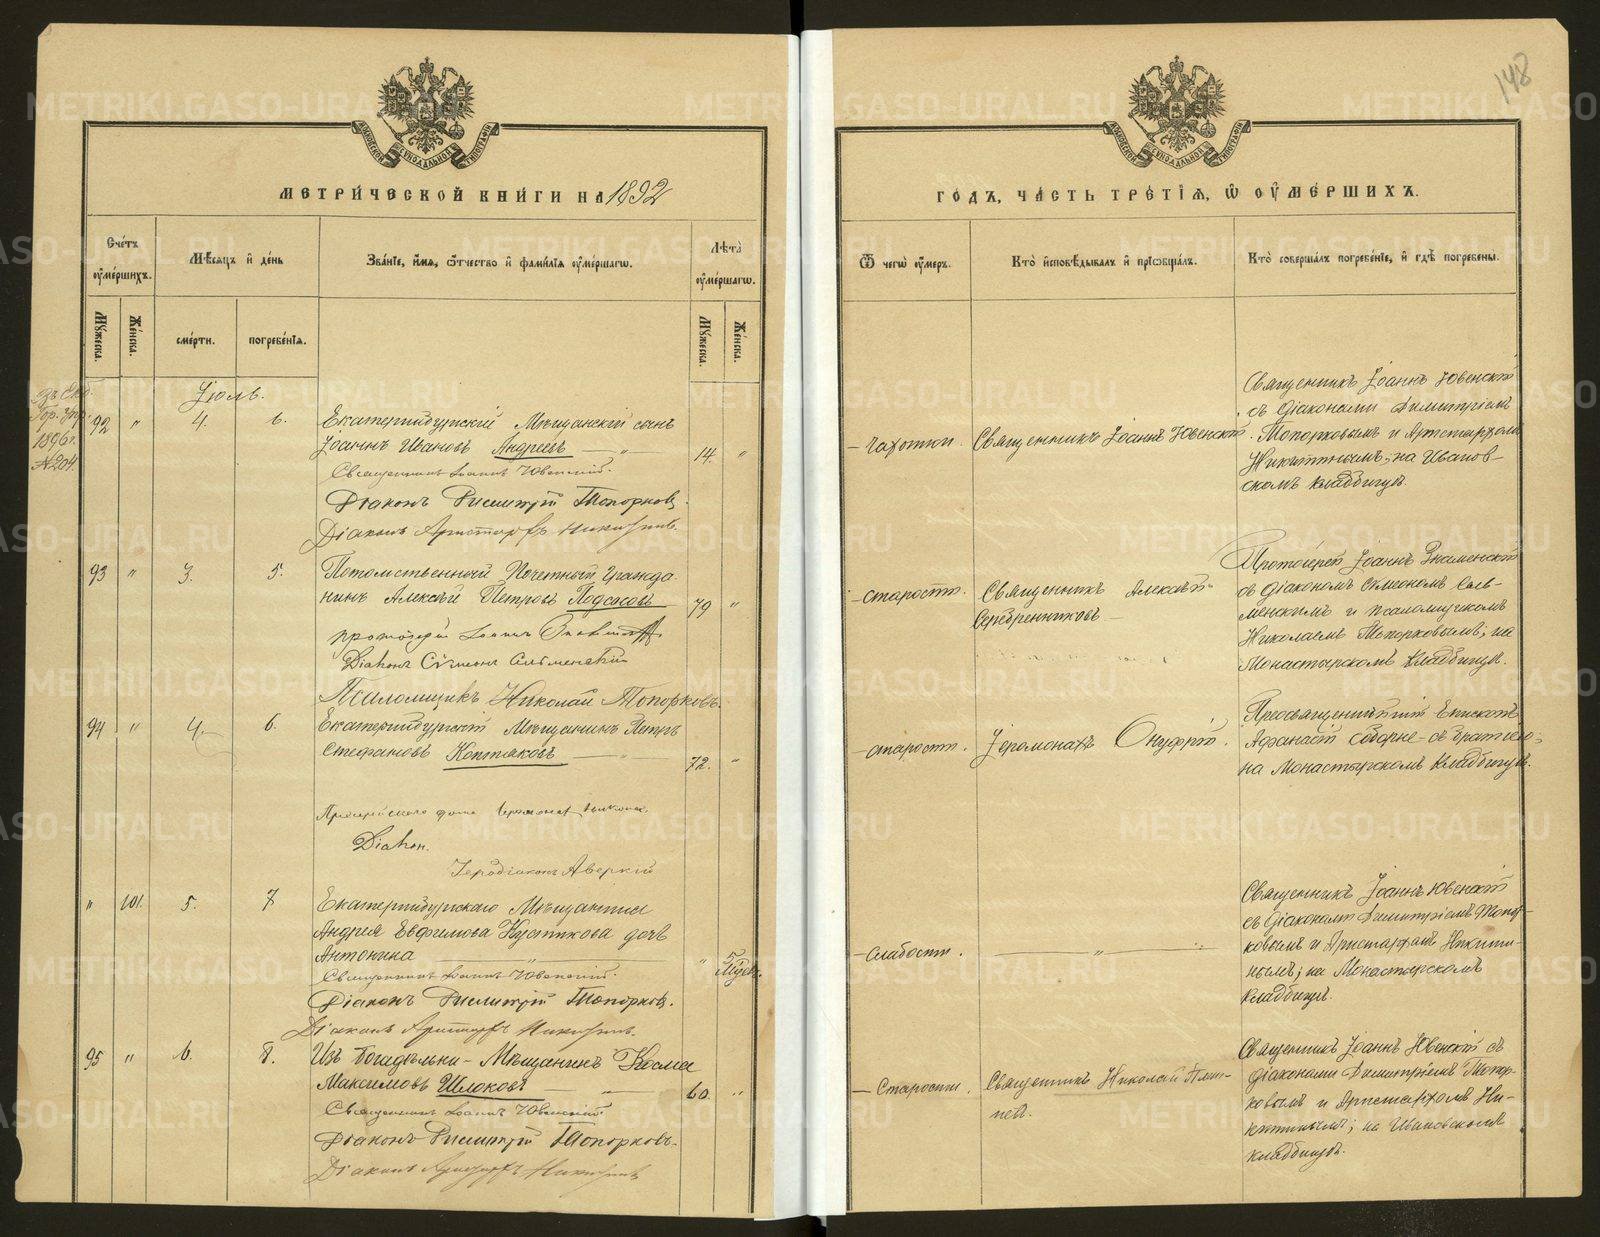 148
МЕТРИ́ЧЕСКОЙ КНИ́ГИ НА 1892
ГО́ДЪ, ЧА́СТЬ ТРЕ́ТІѦ, Ѿ ОУ҆МЕ́РШИХЪ.
Сче́тъ оу҆ме́ршихъ.
Мѣ́сѧцъ и҆ де́нь
Зва́нїе, и҆́мѧ, ѻ҆́тчество и҆ фами́лїѧ оу҆ме́ршагѡ.
Лѣ́та оу҆ме́ршагѡ.
Ѿ чегѡ̀ оу҆́мер.
Кто̀ и҆сповѣ́дывалъ и҆ прїѡбща́лъ.
Кто̀ соверша́лъ погребе́нїе, и҆ гдѣ̀ погребены̀.
Мꙋ́жеска.
Же́нска.
сме́рти.
погребе́нїѧ.
Мꙋ́жеска.
Же́нска.
Іюль.
1896 г.
№ 204.
92 " 4. 6. Екатеринбургскій Мѣщанскій сынъ
Іоаннъ Ивановъ Андреевъ — " — 14. "
Священникъ Іоаннъ Ювенскій.
Діаконъ Димитрій Топорковъ.
Діаконъ Аристархъ Никитинъ.
Чахотки. Священникъ Іоаннъ Ювенскій.
Священникъ Іоаннъ Ювенскій
съ діаконами Димитріемъ
Топорковымъ и Аристархомъ
Никитинымъ; на Иванов-
скомъ кладбищѣ.
93 " 3. 5. Потомственный Почетный Гражда-
нинъ Алексѣй Петровъ Подсосовъ 79 "
протоіерей Іоаннъ Знаменскій
Діаконъ Сѵмеонъ Сельменскій
Псаломщикъ Николай Топорковъ.
старости. Священникъ Алексѣй
Серебренниковъ —
Протоіерей Іоаннъ Знаменскій
съ діакономъ Сѵмеономъ Сель-
менскимъ и псаломщикомъ
Николаемъ Топорковымъ; на
Монастырскомъ кладбищѣ.
94 " 4. 6. Екатеринбургскій Мѣщанинъ Петръ
Стефановъ Коптяковъ — " — 72. "
Діаконъ.
Іеродіаконъ Аверкій
старости. Іеромонахъ Онуфрій.
Преосвященнѣйшій Епископъ
Афанасій соборне съ братіею;
на Монастырскомъ кладбищѣ.
" 101. 5. 7 Екатеринбургскаго Мѣщанина
Андрея Евфимова Кустикова дочь
Антонина — " — " 5 Мѣсяц.
Священникъ Іоаннъ Ювенскій.
Діаконъ Димитрій Топорковъ.
Діаконъ Аристархъ Никитинъ.
слабости. — " —
Священникъ Іоаннъ Ювенскій
съ діаконами Димитріемъ Топор-
ковымъ и Аристархомъ Никити-
нымъ; на Монастырскомъ
кладбищѣ.
95 " 6. 8. Изъ богадѣльни — Мѣщанинъ Косма
Максимовъ Шлоковъ — " — 60. "
Священникъ Іоаннъ Ювенскій
Діаконъ Димитрій Топорковъ.
Діаконъ Аристархъ Никитинъ
Старости. Священникъ Николай
Священникъ Іоаннъ Ювенскій съ
діаконами Димитріемъ Топор-
ковымъ и Аристархомъ Ни-
китинымъ; на Ивановскомъ
кладбищѣ.
METRIKI.GASO-URAL.RU